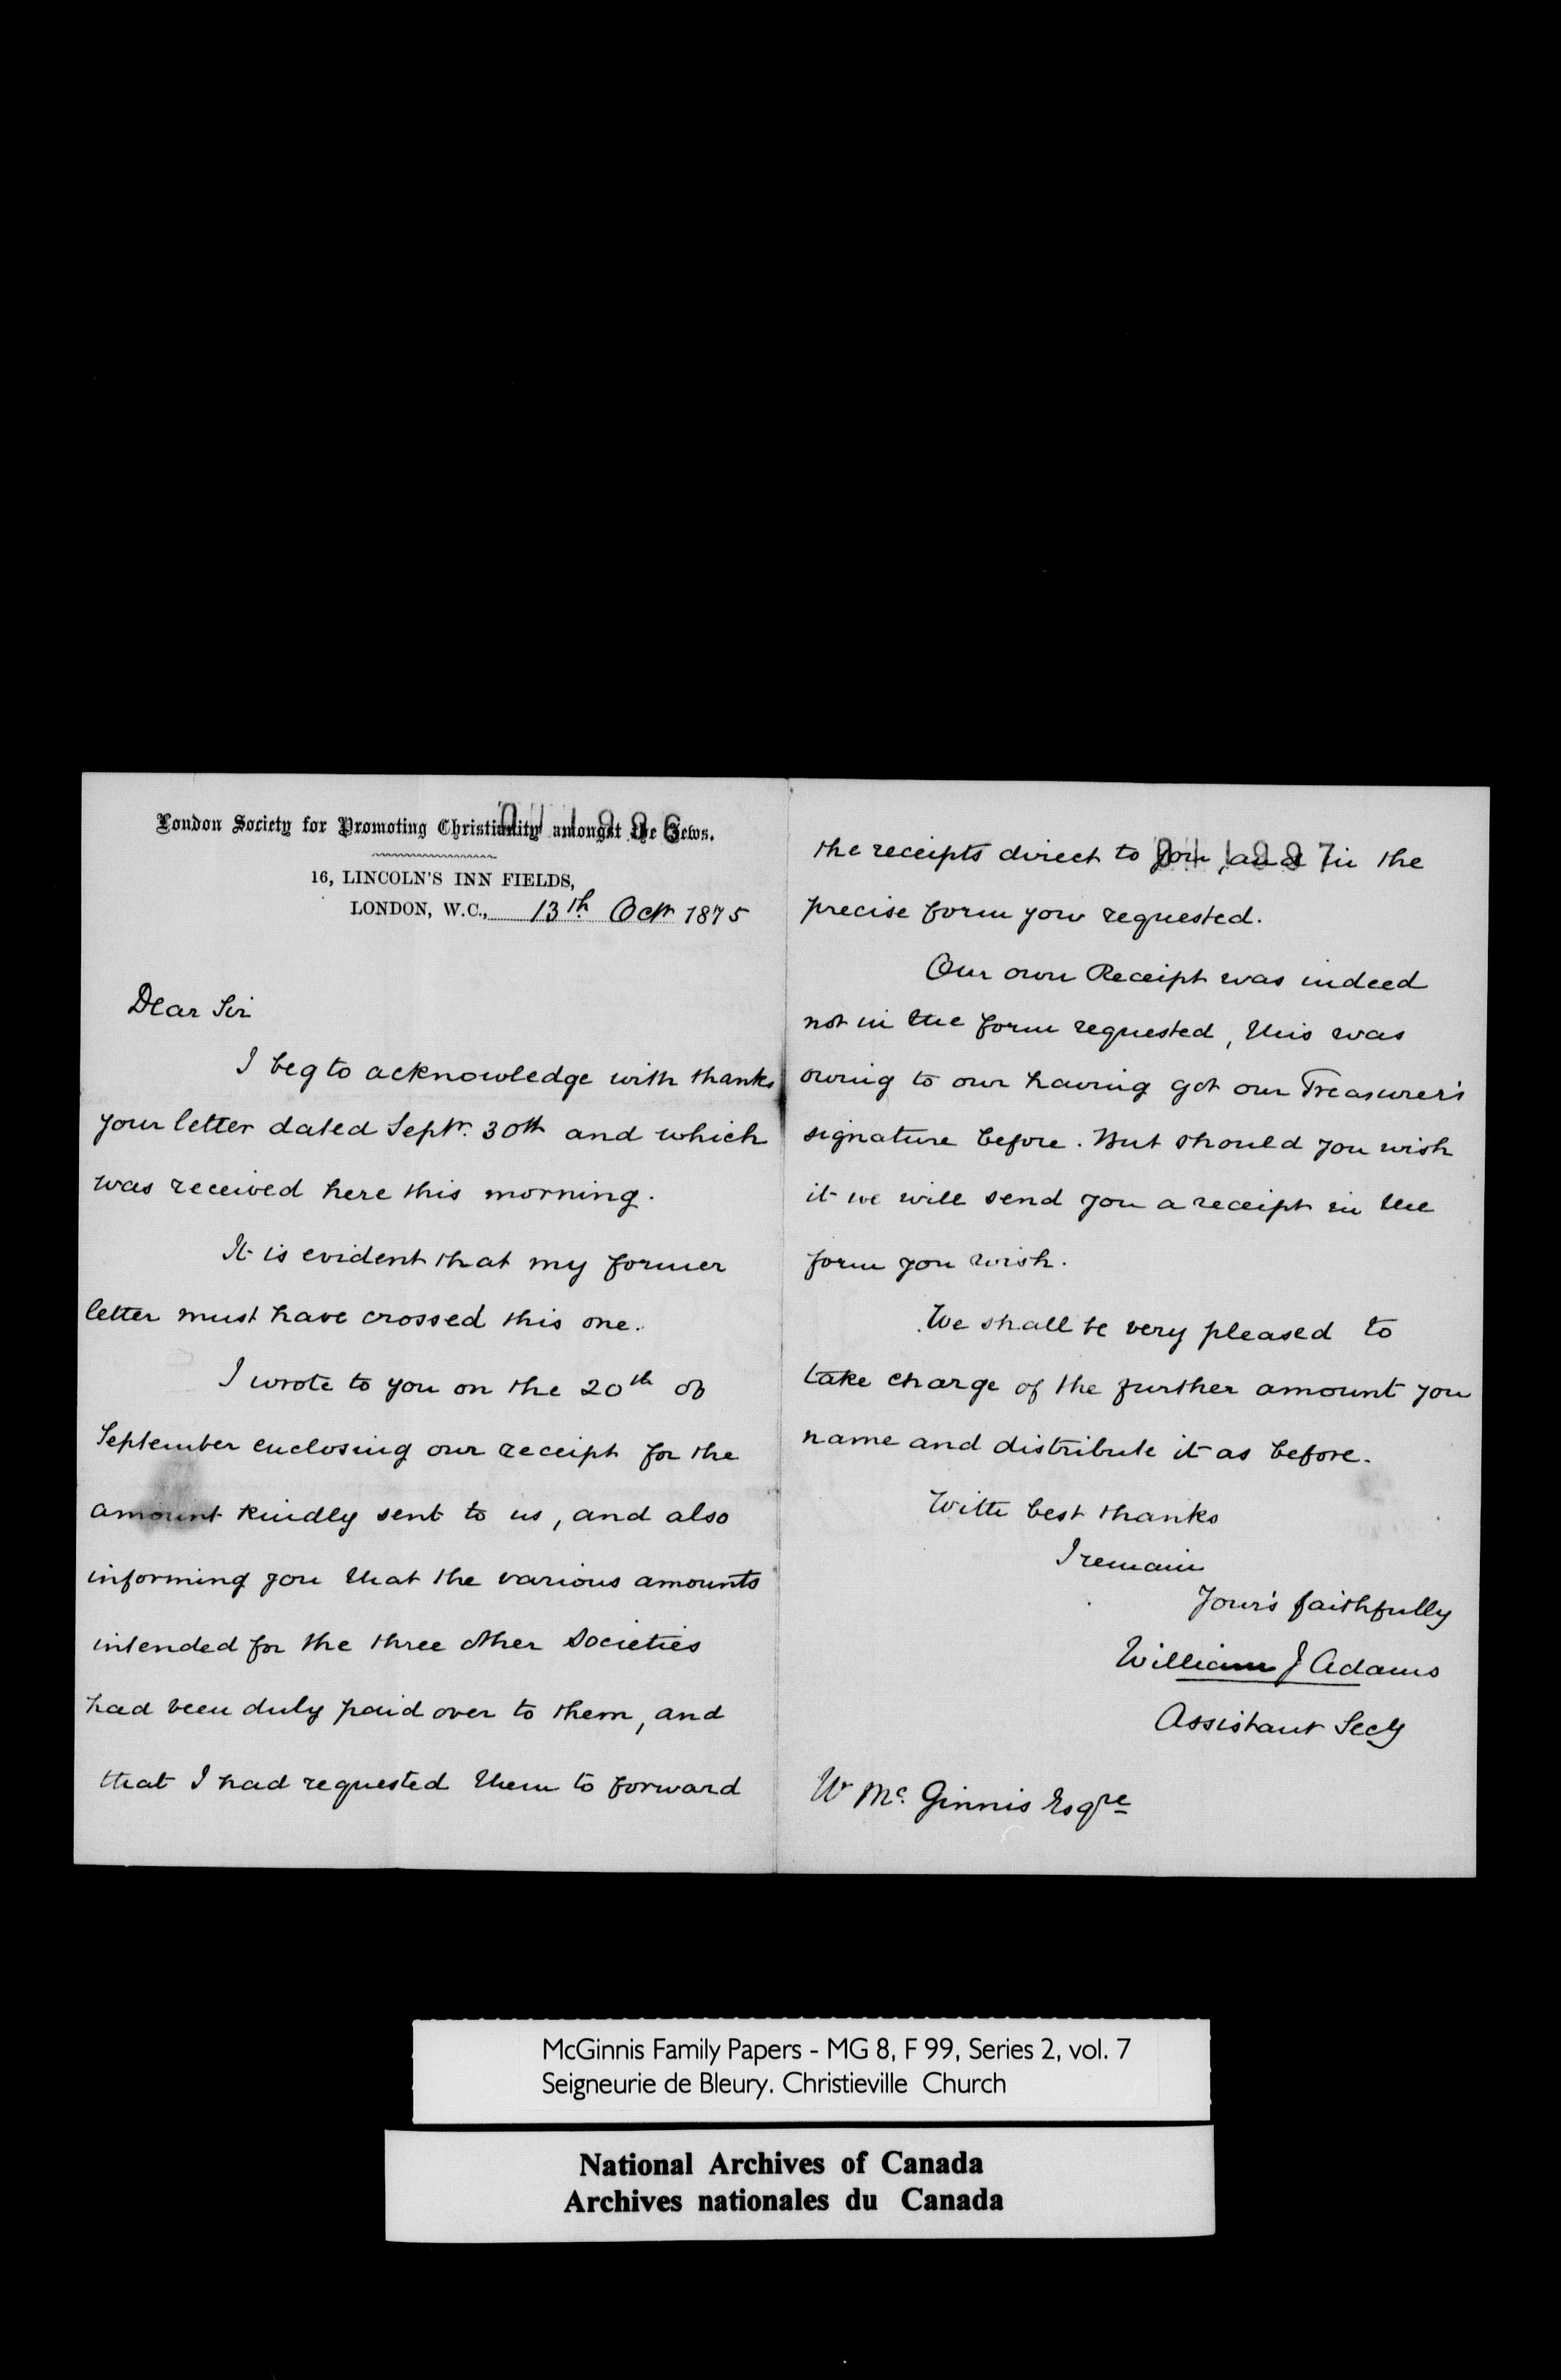 London Society for Promoting Christianity amongst the Jews.
16, LINCOLN'S INN FIELDS,
LONDON, W.C., 13th Octr 1875
Dear Sir
I beg to acknowledge with thanks
your letter dated Septr. 30th and which
was received here this morning.
It is evident that my former
letter must have crossed this one.
I wrote to you on the 20th of
September enclosing our receipt for the
amount kindly sent to us, and also
informing you that the various amounts
intended for the three other Societies
had been duly paid over to them, and
that I had requested them to forward
the receipts direct to you, and in the
precise form you requested.
Our own Receipt was indeed
not in the form requested, this was
owing to our having got our Treasurer's
signature before. But should you wish
it we will send you a receipt in the
form you wish.
We shall be very pleased to
take charge of the further amount you
name and distribute it as before.
With best thanks
I remain
Your's faithfully
William J Adams
Assistant Secy
W Mc. Ginnis Esqre
McGinnis Family Papers - MG 8, F 99, Series 2, vol. 7
Seigneurie de Bleury. Christieville Church
National Archives of Canada
Archives nationales du Canada